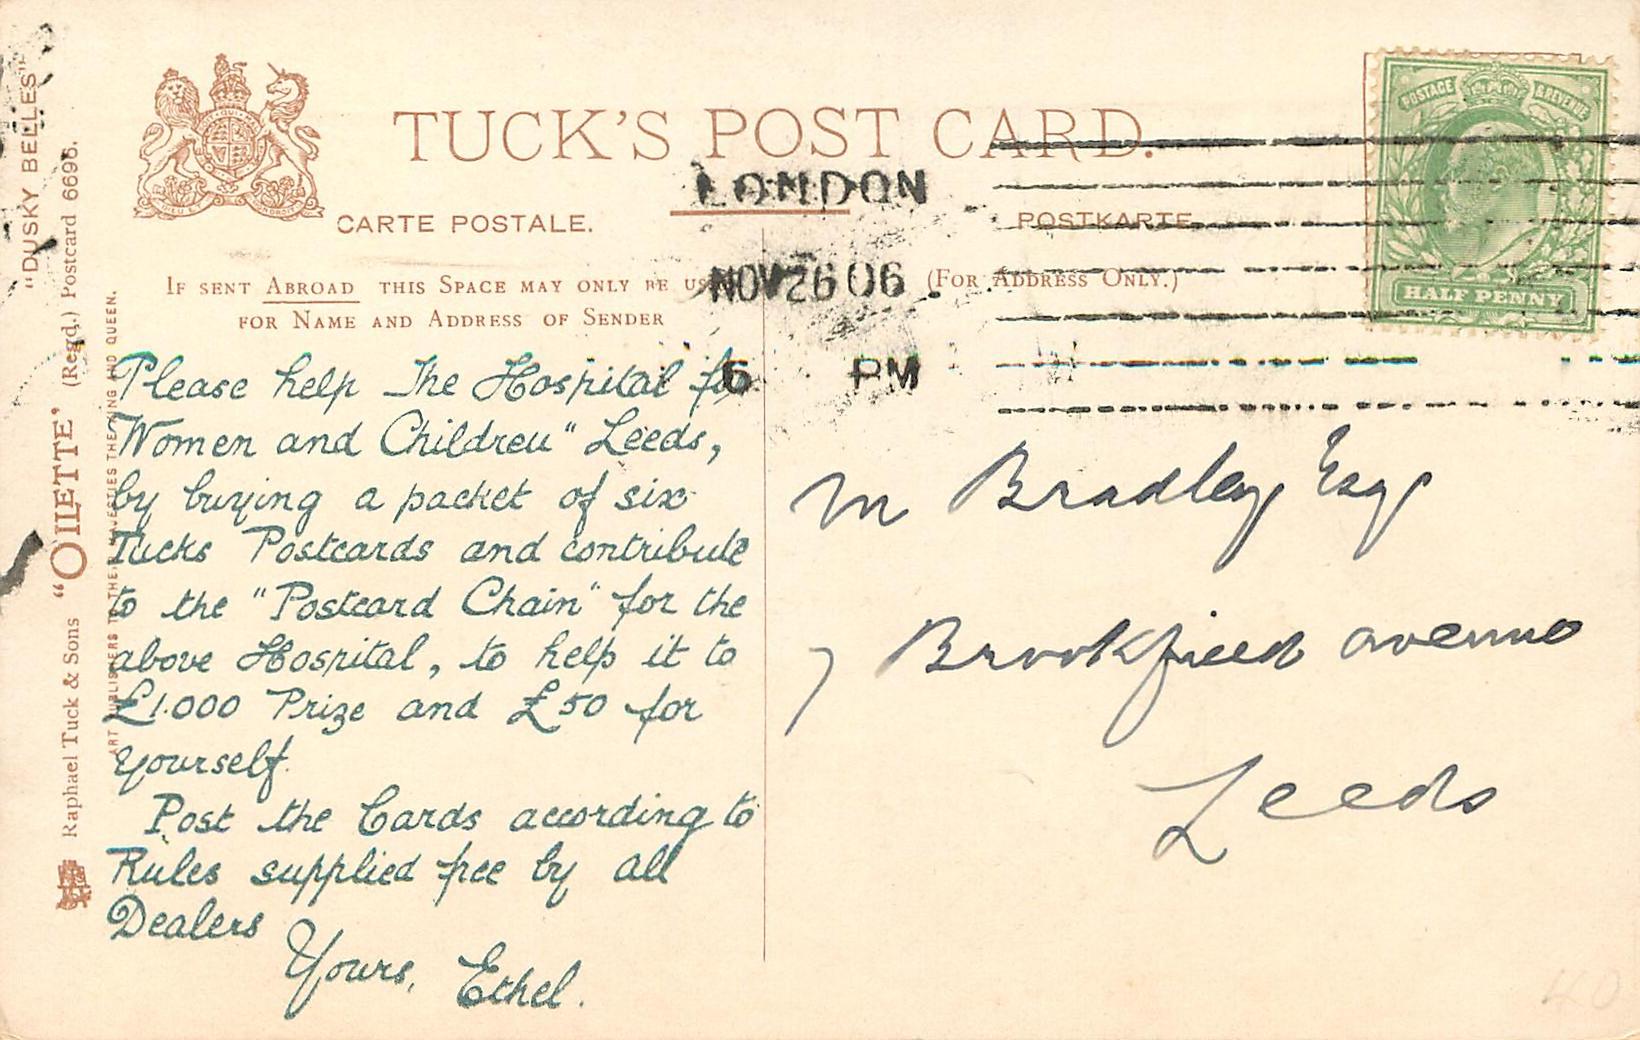 "DUSKY BELLES"
Raphael Tuck & Sons "OILETTE" (Regd.) Postcard 6696.
ART PUBLISHERS TO THEIR MAJESTIES THE KING AND QUEEN.
TUCK'S POST CARD.
CARTE POSTALE.
POSTKARTE
IF SENT ABROAD THIS SPACE MAY ONLY BE US
FOR NAME AND ADDRESS OF SENDER
(FOR ADDRESS ONLY.)
LONDON
NOV 26 06
6 PM
POSTAGE & REVENUE
HALF PENNY
Please help The Hospital for
Women and Children" Leeds,
by buying a packet of six
Tucks Postcards and contribute
to the "Postcard Chain" for the
above Hospital, to help it to
£1.000 Prize and £50 for
yourself.
Post the Cards according to
Rules supplied free by all
Dealers
Yours, Ethel.
M Bradley Esq
7 Brookfield avenue
Leeds
40